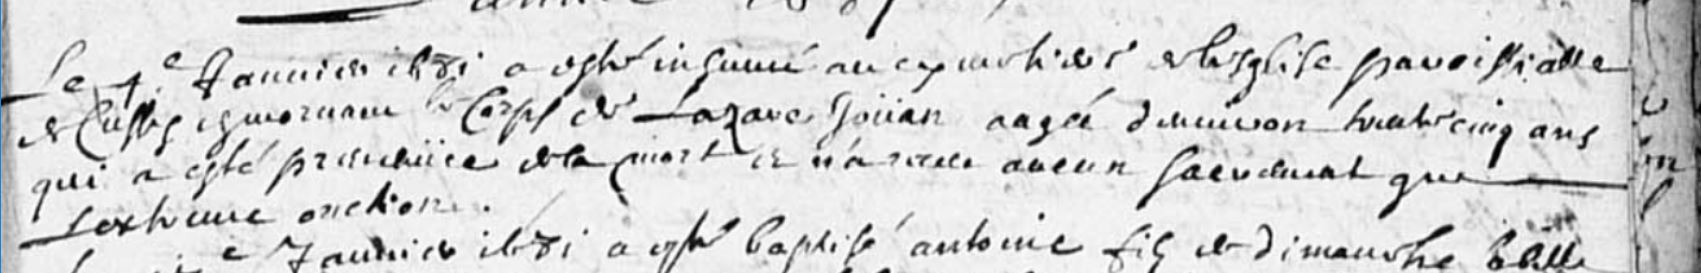 année 1681
Le 4e Januier 1681 a esté inhumé au cymetiere de lesglise paroissialle
de Cussy en moruant le Corps de Lazare Joüan aagé denuiron trente cinq ans
qui a esté preueniie de la mort et n'a receu aucun sacrement que
lextreme onction.
e Januier 1681 a esté baptisé antoine fils de dimanche